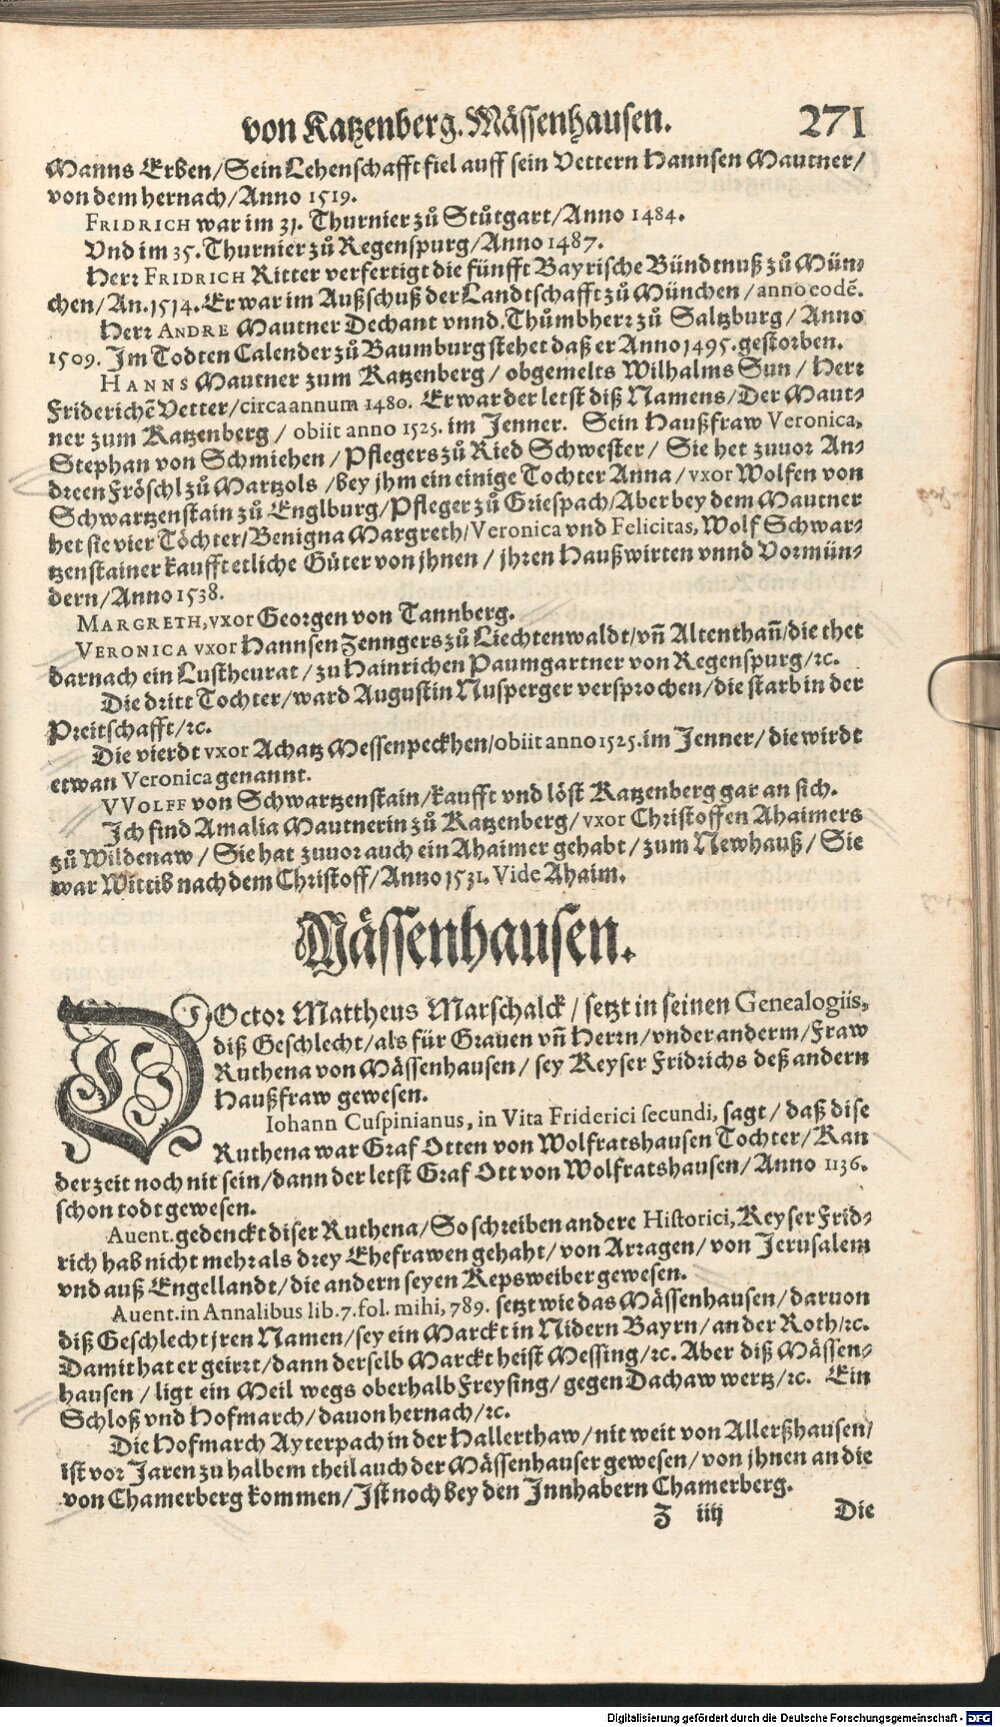 von Katzenberg. Mässenhausen. 271
Manns Erben/Sein Lehenschafft fiel auff sein Vettern Hannsen Mautner/
von dem hernach/Anno 1519.
FRIDRICH war im 31. Thurnier zů Stůtgart/Anno 1484.
Vnd im 35. Thurnier zů Regenspurg/Anno 1487.
Herr FRIDRICH Ritter verfertigt die fünfft Bayrische Bündtnuß zů Mün-
chen/An. 1514. Er war im Außschuß der Landtschafft zů München/anno eodē.
Herr ANDRE Mautner Dechant vnnd Thůmbherr zů Saltzburg/Anno
1509. Im Todten Calender zů Baumburg stehet daß er Anno 1495. gestorben.
HANNS Mautner zum Katzenberg/obgemelts Wilhalms Sun/Herr
Friderichē Vetter/circa annum 1480. Er war der letst diß Namens/Der Maut-
ner zum Katzenberg/obiit anno 1525. im Jenner. Sein Haußfraw Veronica,
Stephan von Schmiehen/Pflegers zů Ried Schwester/Sie het zuuor An-
dreen Fröschl zů Martzols/bey jhm ein einige Tochter Anna/vxor Wolfen von
Schwartzenstain zů Englburg/Pfleger zů Griespach/Aber bey dem Mautner
het sie vier Töchter/Benigna Margreth/Veronica vnd Felicitas, Wolf Schwar-
tzenstainer kaufft etliche Güter von jhnen/jhren Haußwirten vnnd Vormün-
dern/Anno 1538.
MARGRETH, vxor Georgen von Tannberg.
VERONICA vxor Hannsen Zenngers zů Liechtenwaldt/vñ Altenthañ/die thet
darnach ein Lustheurat/zu Hainrichen Paumgartner von Regenspurg/ꝛc.
Die dritt Tochter/ward Augustin Nusperger versprochen/die starb in der
Preitschafft/ꝛc.
Die vierdt vxor Achatz Messenpeckhen/obiit anno 1525. im Jenner/die wirdt
etwan Veronica genannt.
VVOLFF von Schwartzenstain/kaufft vnd löst Katzenberg gar an sich.
Ich find Amalia Mautnerin zů Katzenberg/vxor Christoffen Ahaimers
zů Wildenaw/Sie hat zuuor auch ein Ahaimer gehabt/zum Newhauß/Sie
war Wittib nach dem Christoff/Anno 1531. Vide Ahaim.
Mässenhausen.
DOctor Mattheus Marschalck/setzt in seinen Genealogiis,
diß Geschlecht/als für Grauen vñ Herrn/vnder anderm/Fraw
Ruthena von Mässenhausen/sey Keyser Fridrichs deß andern
Haußfraw gewesen.
Iohann Cuspinianus, in Vita Friderici secundi, sagt/daß dise
Ruthena war Graf Otten von Wolfratshausen Tochter/Kan
der zeit noch nit sein/dann der letst Graf Ott von Wolfratshausen/Anno 1136.
schon todt gewesen.
Auent. gedenckt diser Ruthena/So schreiben andere Historici, Keyser Frid-
rich hab nicht mehr als drey Ehefrawen gehabt/von Arragen/von Jerusalem
vnd auß Engellandt/die andern seyen Kepsweiber gewesen.
Auent. in Annalibus lib. 7. fol. mihi, 789. setzt wie das Mässenhausen/daruon
diß Geschlecht jren Namen/sey ein Marckt in Nidern Bayrn/an der Roth/ꝛc.
Damit hat er geirrt/dann derselb Marckt heist Messing/ꝛc. Aber diß Mässen-
hausen/ligt ein Meil wegs oberhalb Freysing/gegen Dachaw wertz/ꝛc. Ein
Schloß vnd Hofmarch/dauon hernach/ꝛc.
Die Hofmarch Ayterpach in der Hallerthaw/nit weit von Allerßhausen/
ist vor Jaren zu halbem theil auch der Mässenhauser gewesen/von jhnen an die
von Chamerberg kommen/Ist noch bey den Innhabern Chamerberg.
Z iiij Die
Digitalisierung gefördert durch die Deutsche Forschungsgemeinschaft - DFG